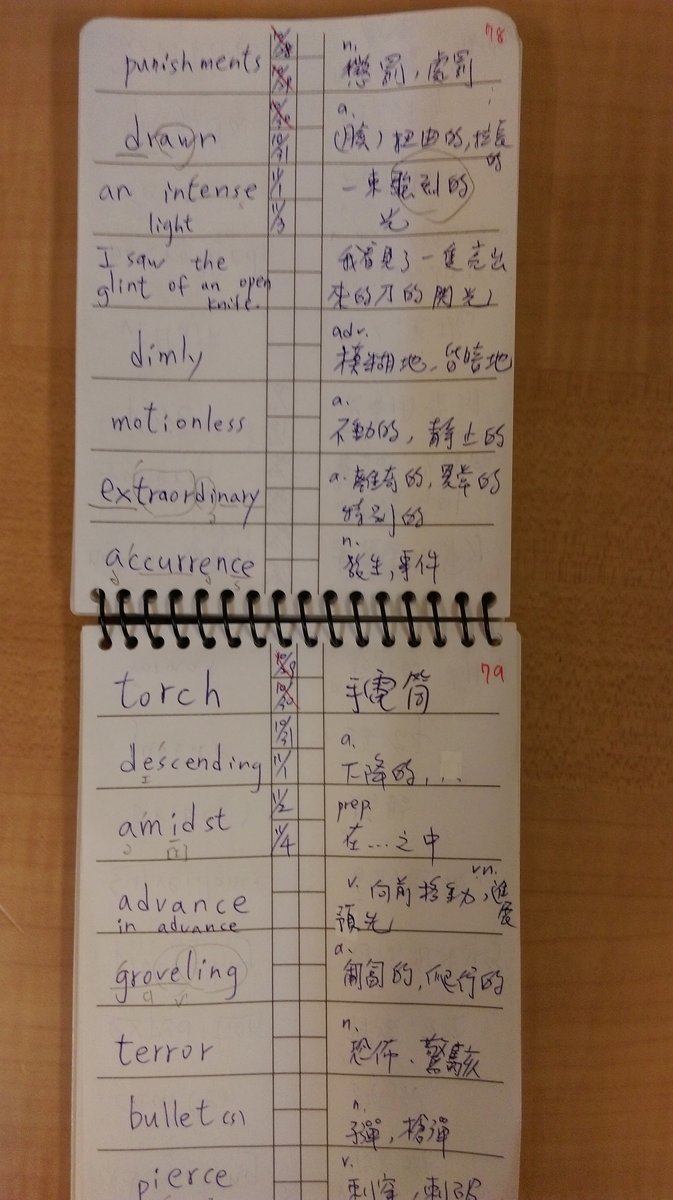 78
punishments
n.
懲罰，處罰
drawn
a.
(臉)扭曲的，拉長的
an intense
light
一束強烈的
光
I saw the
glint of an open
knife.
我看見了一隻亮出
來的刀的閃光
dimly
adv.
模糊地、昏暗地
motionless
a.
不動的，靜止的
extraordinary
a. 離奇的，異常的
特別的
accurrence
n.
發生，事件
10/31
11/1
11/3
79
torch
手電筒
descending
a.
下降的，...
amidst
prep.
在...之中
advance
in advance
v. 向前移動，vn. 進展
預先
groveling
a.
匍匐的，爬行的
terror
n.
恐佈、驚駭
bullet(s)
n.
子彈，槍彈
pierce
v.
刺穿，刺破
10/31
11/1
11/2
11/4